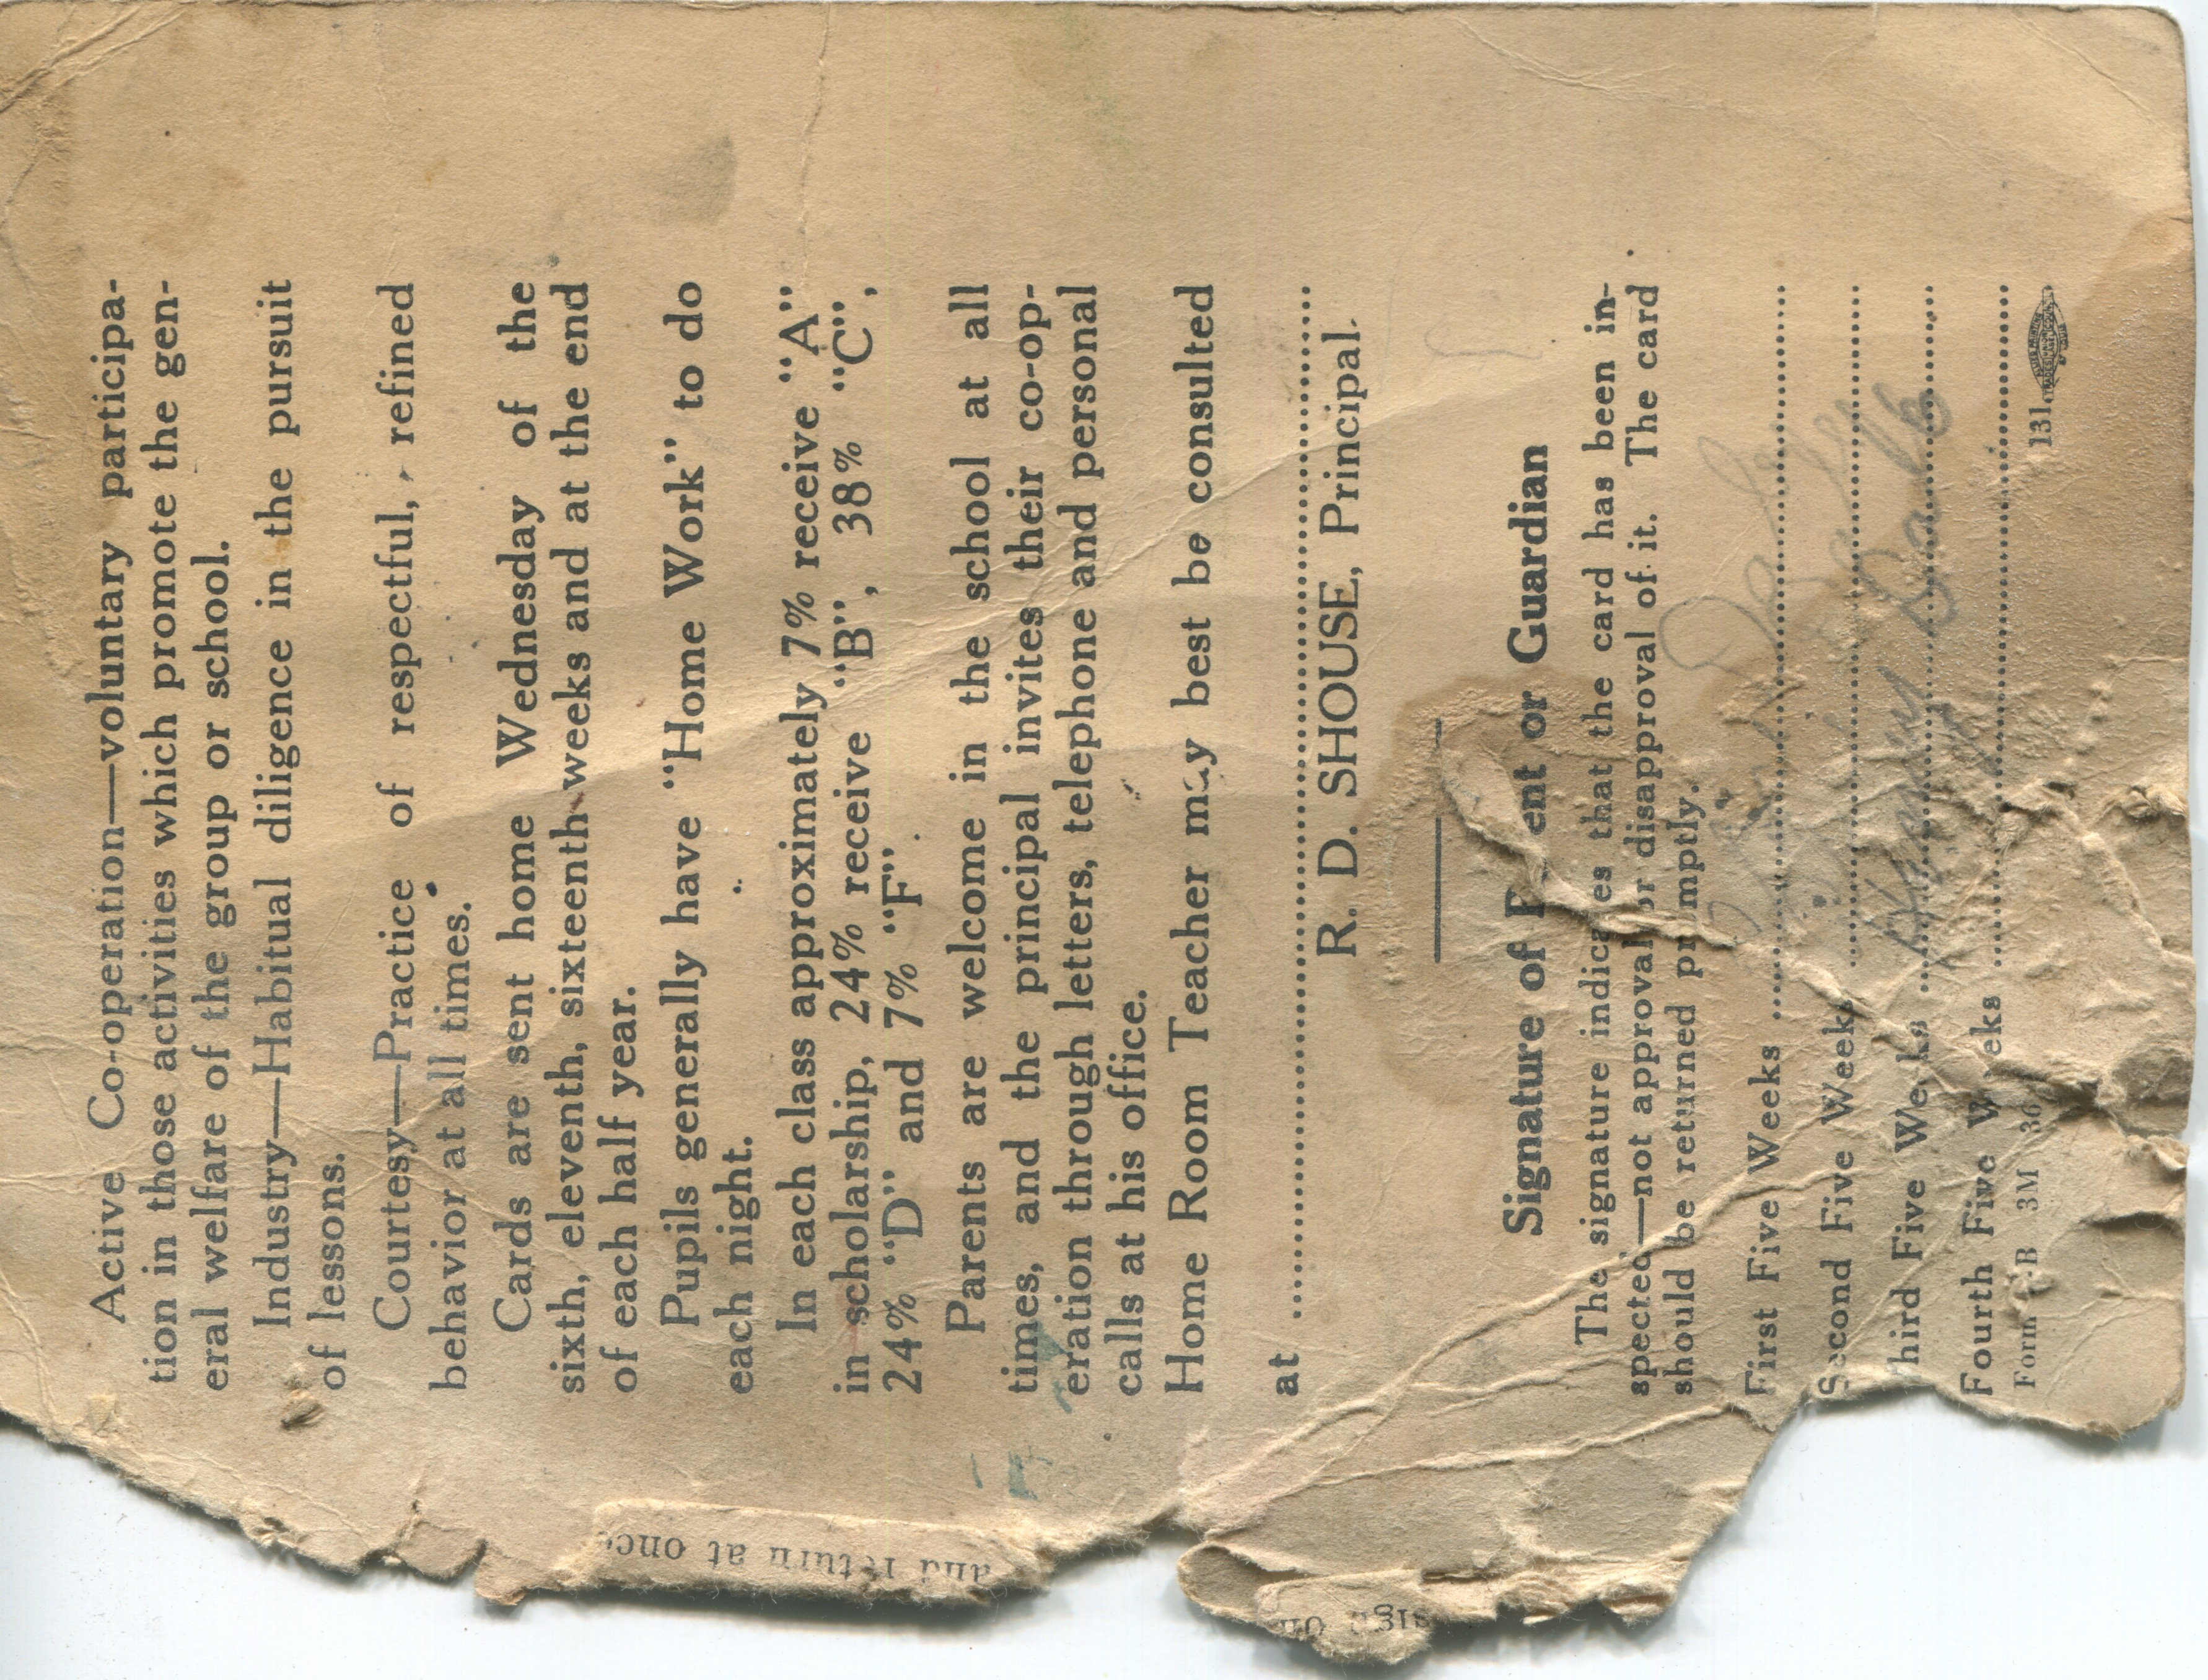 Active Co-operation—voluntary participa-
tion in those activities which promote the gen-
eral welfare of the group or school.
Industry—Habitual diligence in the pursuit
of lessons.
Courtesy—Practice of respectful, refined
behavior at all times.
Cards are sent home Wednesday of the
sixth, eleventh, sixteenth weeks and at the end
of each half year.
Pupils generally have "Home Work" to do
each night.
In each class approximately 7% receive "A"
in scholarship, 24% receive "B", 38% "C",
24% "D" and 7% "F".
Parents are welcome in the school at all
times, and the principal invites their co-op-
eration through letters, telephone and personal
calls at his office.
Home Room Teacher may best be consulted
at
R. D. SHOUSE, Principal.
Signature of Parent or Guardian
The signature indicates that the card has been in-
spected—not approval or disapproval of it. The card
should be returned promptly.
First Five Weeks
Second Five Weeks
Third Five Weeks
Fourth Five Weeks
Form B 3M 36
131
and return at once